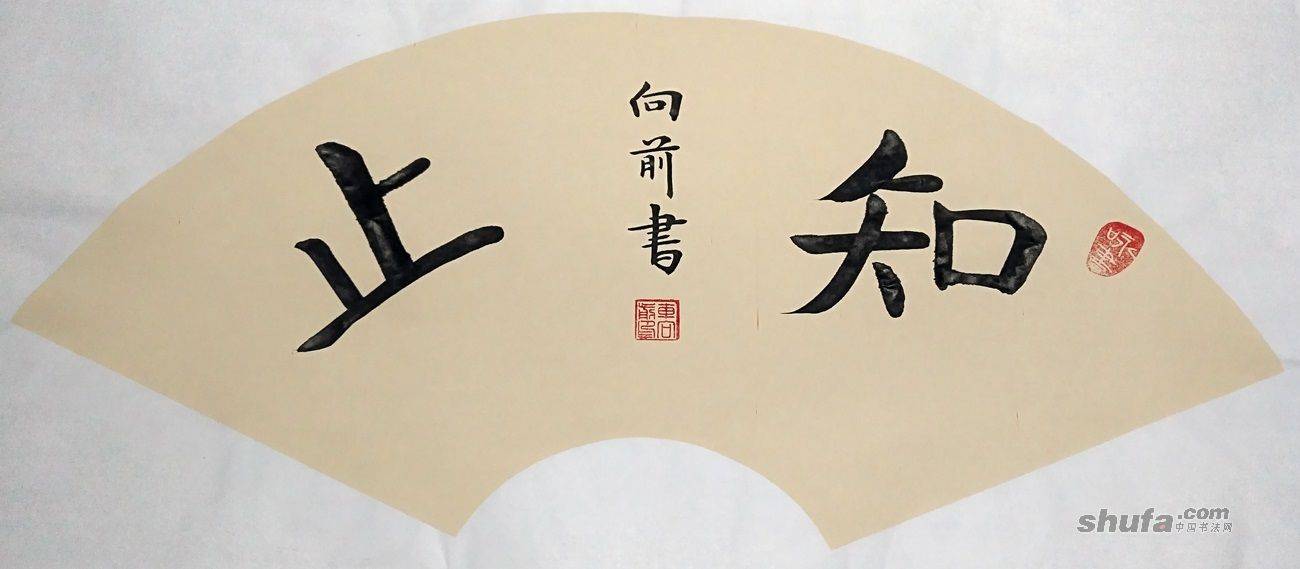 知
向前書
止
shufa.com
中国书法网